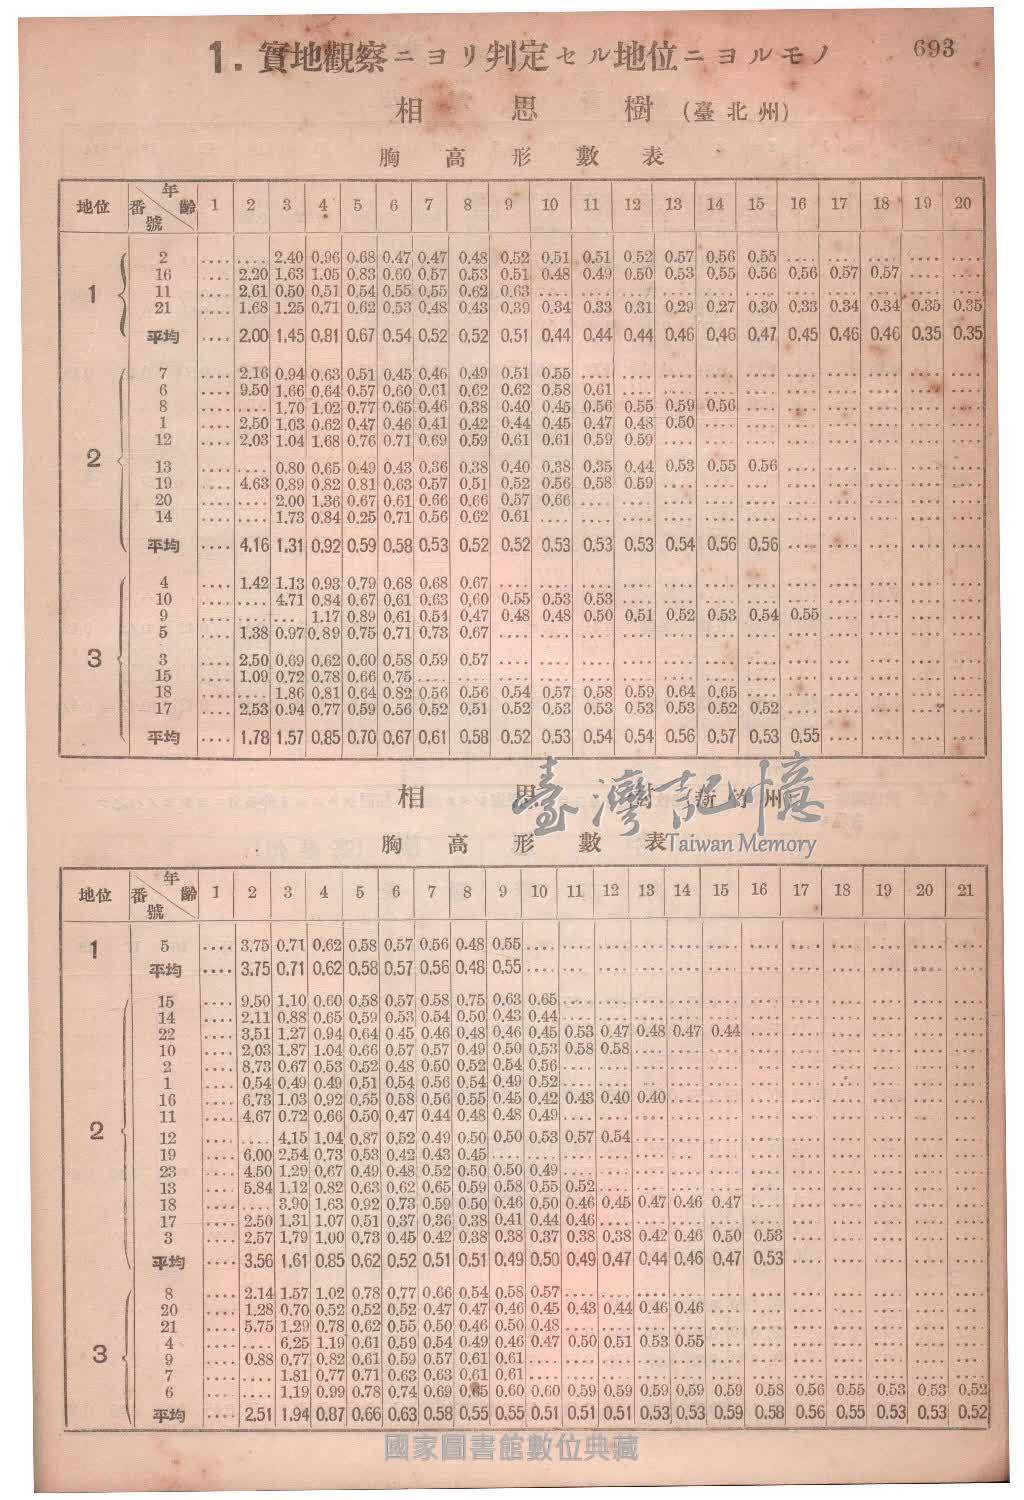 693
1. 實地觀察ニヨリ判定セル地位ニヨルモノ
相思樹(臺北州)
胸高形數表
地位 番號 年齡 1 2 3 4 5 6 7 8 9 10 11 12 13 14 15 16 17 18 19 20
1
2 .... .... 2.40 0.96 0.68 0.47 0.47 0.48 0.52 0.51 0.51 0.52 0.57 0.56 0.55 .... .... .... .... ....
16 .... 2.20 1.63 1.05 0.83 0.60 0.57 0.53 0.51 0.48 0.49 0.50 0.53 0.55 0.56 0.56 0.57 0.57 .... ....
11 .... 2.61 0.50 0.51 0.54 0.55 0.55 0.62 0.63 .... .... .... .... .... .... .... .... .... .... ....
21 .... 1.68 1.25 0.71 0.62 0.53 0.48 0.43 0.39 0.34 0.33 0.31 0.29 0.27 0.30 0.33 0.34 0.34 0.35 0.35
平均 .... 2.00 1.45 0.81 0.67 0.54 0.52 0.52 0.51 0.44 0.44 0.44 0.46 0.46 0.47 0.45 0.46 0.46 0.35 0.35
2
7 .... 2.16 0.94 0.63 0.51 0.45 0.46 0.49 0.51 0.55 .... .... .... .... .... .... .... .... .... ....
6 .... 9.50 1.66 0.64 0.57 0.60 0.61 0.62 0.62 0.58 0.61 .... .... .... .... .... .... .... .... ....
8 .... .... 1.70 1.02 0.77 0.65 0.46 0.38 0.40 0.45 0.56 0.55 0.59 0.56 .... .... .... .... .... ....
1 .... 2.50 1.03 0.62 0.47 0.46 0.41 0.42 0.44 0.45 0.47 0.48 0.50 .... .... .... .... .... .... ....
12 .... 2.03 1.04 1.68 0.76 0.71 0.69 0.59 0.61 0.61 0.59 0.59 .... .... .... .... .... .... .... ....
13 .... .... 0.80 0.65 0.49 0.43 0.36 0.38 0.40 0.38 0.35 0.44 0.53 0.55 0.56 .... .... .... .... ....
19 .... 4.63 0.89 0.82 0.81 0.63 0.57 0.51 0.52 0.56 0.58 0.59 .... .... .... .... .... .... .... ....
20 .... .... 2.00 1.36 0.67 0.61 0.66 0.66 0.57 0.66 .... .... .... .... .... .... .... .... .... ....
14 .... .... 1.73 0.84 0.25 0.71 0.56 0.62 0.61 .... .... .... .... .... .... .... .... .... .... ....
平均 .... 4.16 1.31 0.92 0.59 0.58 0.53 0.52 0.52 0.53 0.53 0.53 0.54 0.56 0.56 .... .... .... .... ....
3
4 .... 1.42 1.13 0.93 0.79 0.68 0.68 0.67 .... .... .... .... .... .... .... .... .... .... .... ....
10 .... .... 4.71 0.84 0.67 0.61 0.63 0.60 0.55 0.53 0.53 .... .... .... .... .... .... .... .... ....
9 .... .... .... 1.17 0.89 0.61 0.54 0.47 0.48 0.48 0.50 0.51 0.52 0.53 0.54 0.55 .... .... .... ....
5 .... 1.38 0.97 0.89 0.75 0.71 0.73 0.67 .... .... .... .... .... .... .... .... .... .... .... ....
3 .... 2.50 0.69 0.62 0.60 0.58 0.59 0.57 .... .... .... .... .... .... .... .... .... .... .... ....
15 .... 1.09 0.72 0.78 0.66 0.75 .... .... .... .... .... .... .... .... .... .... .... .... .... ....
18 .... .... 1.86 0.81 0.64 0.82 0.56 0.56 0.54 0.57 0.58 0.59 0.64 0.65 .... .... .... .... .... ....
17 .... 2.53 0.94 0.77 0.59 0.56 0.52 0.51 0.52 0.53 0.53 0.53 0.53 0.52 0.52 .... .... .... .... ....
平均 .... 1.78 1.57 0.85 0.70 0.67 0.61 0.58 0.52 0.53 0.54 0.54 0.56 0.57 0.53 0.55 .... .... .... ....
臺灣記憶
相思樹(新竹州)
Taiwan Memory
胸高形數表
地位 番號 年齡 1 2 3 4 5 6 7 8 9 10 11 12 13 14 15 16 17 18 19 20 21
1
5 .... 3.75 0.71 0.62 0.58 0.57 0.56 0.48 0.55 .... .... .... .... .... .... .... .... .... .... .... ....
平均 .... 3.75 0.71 0.62 0.58 0.57 0.56 0.48 0.55 .... .... .... .... .... .... .... .... .... .... .... ....
2
15 .... 9.50 1.10 0.60 0.58 0.57 0.58 0.75 0.63 0.65 .... .... .... .... .... .... .... .... .... .... ....
14 .... 2.11 0.88 0.65 0.59 0.53 0.54 0.50 0.43 0.44 .... .... .... .... .... .... .... .... .... .... ....
22 .... 3.51 1.27 0.94 0.64 0.45 0.46 0.48 0.46 0.45 0.53 0.47 0.48 0.47 0.44 .... .... .... .... .... ....
10 .... 2.03 1.87 1.04 0.66 0.57 0.57 0.49 0.50 0.53 0.58 0.58 .... .... .... .... .... .... .... .... ....
2 .... 8.73 0.67 0.53 0.52 0.48 0.50 0.52 0.54 0.56 .... .... .... .... .... .... .... .... .... .... ....
1 .... 0.54 0.49 0.49 0.51 0.54 0.56 0.54 0.49 0.52 .... .... .... .... .... .... .... .... .... .... ....
16 .... 6.73 1.03 0.92 0.55 0.58 0.56 0.55 0.45 0.42 0.43 0.40 0.40 .... .... .... .... .... .... .... ....
11 .... 4.67 0.72 0.66 0.50 0.47 0.44 0.48 0.48 0.49 .... .... .... .... .... .... .... .... .... .... ....
12 .... .... 4.15 1.04 0.87 0.52 0.49 0.50 0.50 0.53 0.57 0.54 .... .... .... .... .... .... .... .... ....
19 .... 6.00 2.54 0.73 0.53 0.42 0.43 0.45 .... .... .... .... .... .... .... .... .... .... .... .... ....
23 .... 4.50 1.29 0.67 0.49 0.48 0.52 0.50 0.50 0.49 .... .... .... .... .... .... .... .... .... .... ....
13 .... 5.84 1.12 0.82 0.63 0.62 0.65 0.59 0.58 0.55 0.52 .... .... .... .... .... .... .... .... .... ....
18 .... .... 3.90 1.63 0.92 0.73 0.59 0.50 0.46 0.50 0.46 0.45 0.47 0.46 0.47 .... .... .... .... .... ....
17 .... 2.50 1.31 1.07 0.51 0.37 0.36 0.38 0.41 0.44 0.46 .... .... .... .... .... .... .... .... .... ....
3 .... 2.57 1.79 1.00 0.73 0.45 0.42 0.38 0.38 0.37 0.38 0.38 0.42 0.46 0.50 0.53 .... .... .... .... ....
平均 .... 3.56 1.61 0.85 0.62 0.52 0.51 0.51 0.49 0.50 0.49 0.47 0.44 0.46 0.47 0.53 .... .... .... .... ....
3
8 .... 2.14 1.57 1.02 0.78 0.77 0.66 0.54 0.58 0.57 .... .... .... .... .... .... .... .... .... .... ....
20 .... 1.28 0.70 0.52 0.52 0.52 0.47 0.47 0.46 0.45 0.43 0.44 0.46 0.46 .... .... .... .... .... .... ....
21 .... 5.75 1.29 0.78 0.62 0.55 0.50 0.46 0.50 0.48 .... .... .... .... .... .... .... .... .... .... ....
4 .... .... 6.25 1.19 0.61 0.59 0.54 0.49 0.46 0.47 0.50 0.51 0.53 0.55 .... .... .... .... .... .... ....
9 .... 0.88 0.77 0.82 0.61 0.59 0.57 0.61 0.61 .... .... .... .... .... .... .... .... .... .... .... ....
7 .... .... 1.81 0.77 0.71 0.63 0.63 0.61 0.61 .... .... .... .... .... .... .... .... .... .... .... ....
6 .... .... 1.19 0.99 0.78 0.74 0.69 0.65 0.60 0.60 0.59 0.59 0.59 0.59 0.59 0.58 0.56 0.55 0.53 0.53 0.52
平均 .... 2.51 1.94 0.87 0.66 0.63 0.58 0.55 0.55 0.51 0.51 0.51 0.53 0.53 0.59 0.58 0.56 0.55 0.53 0.53 0.52
國家圖書館數位典藏